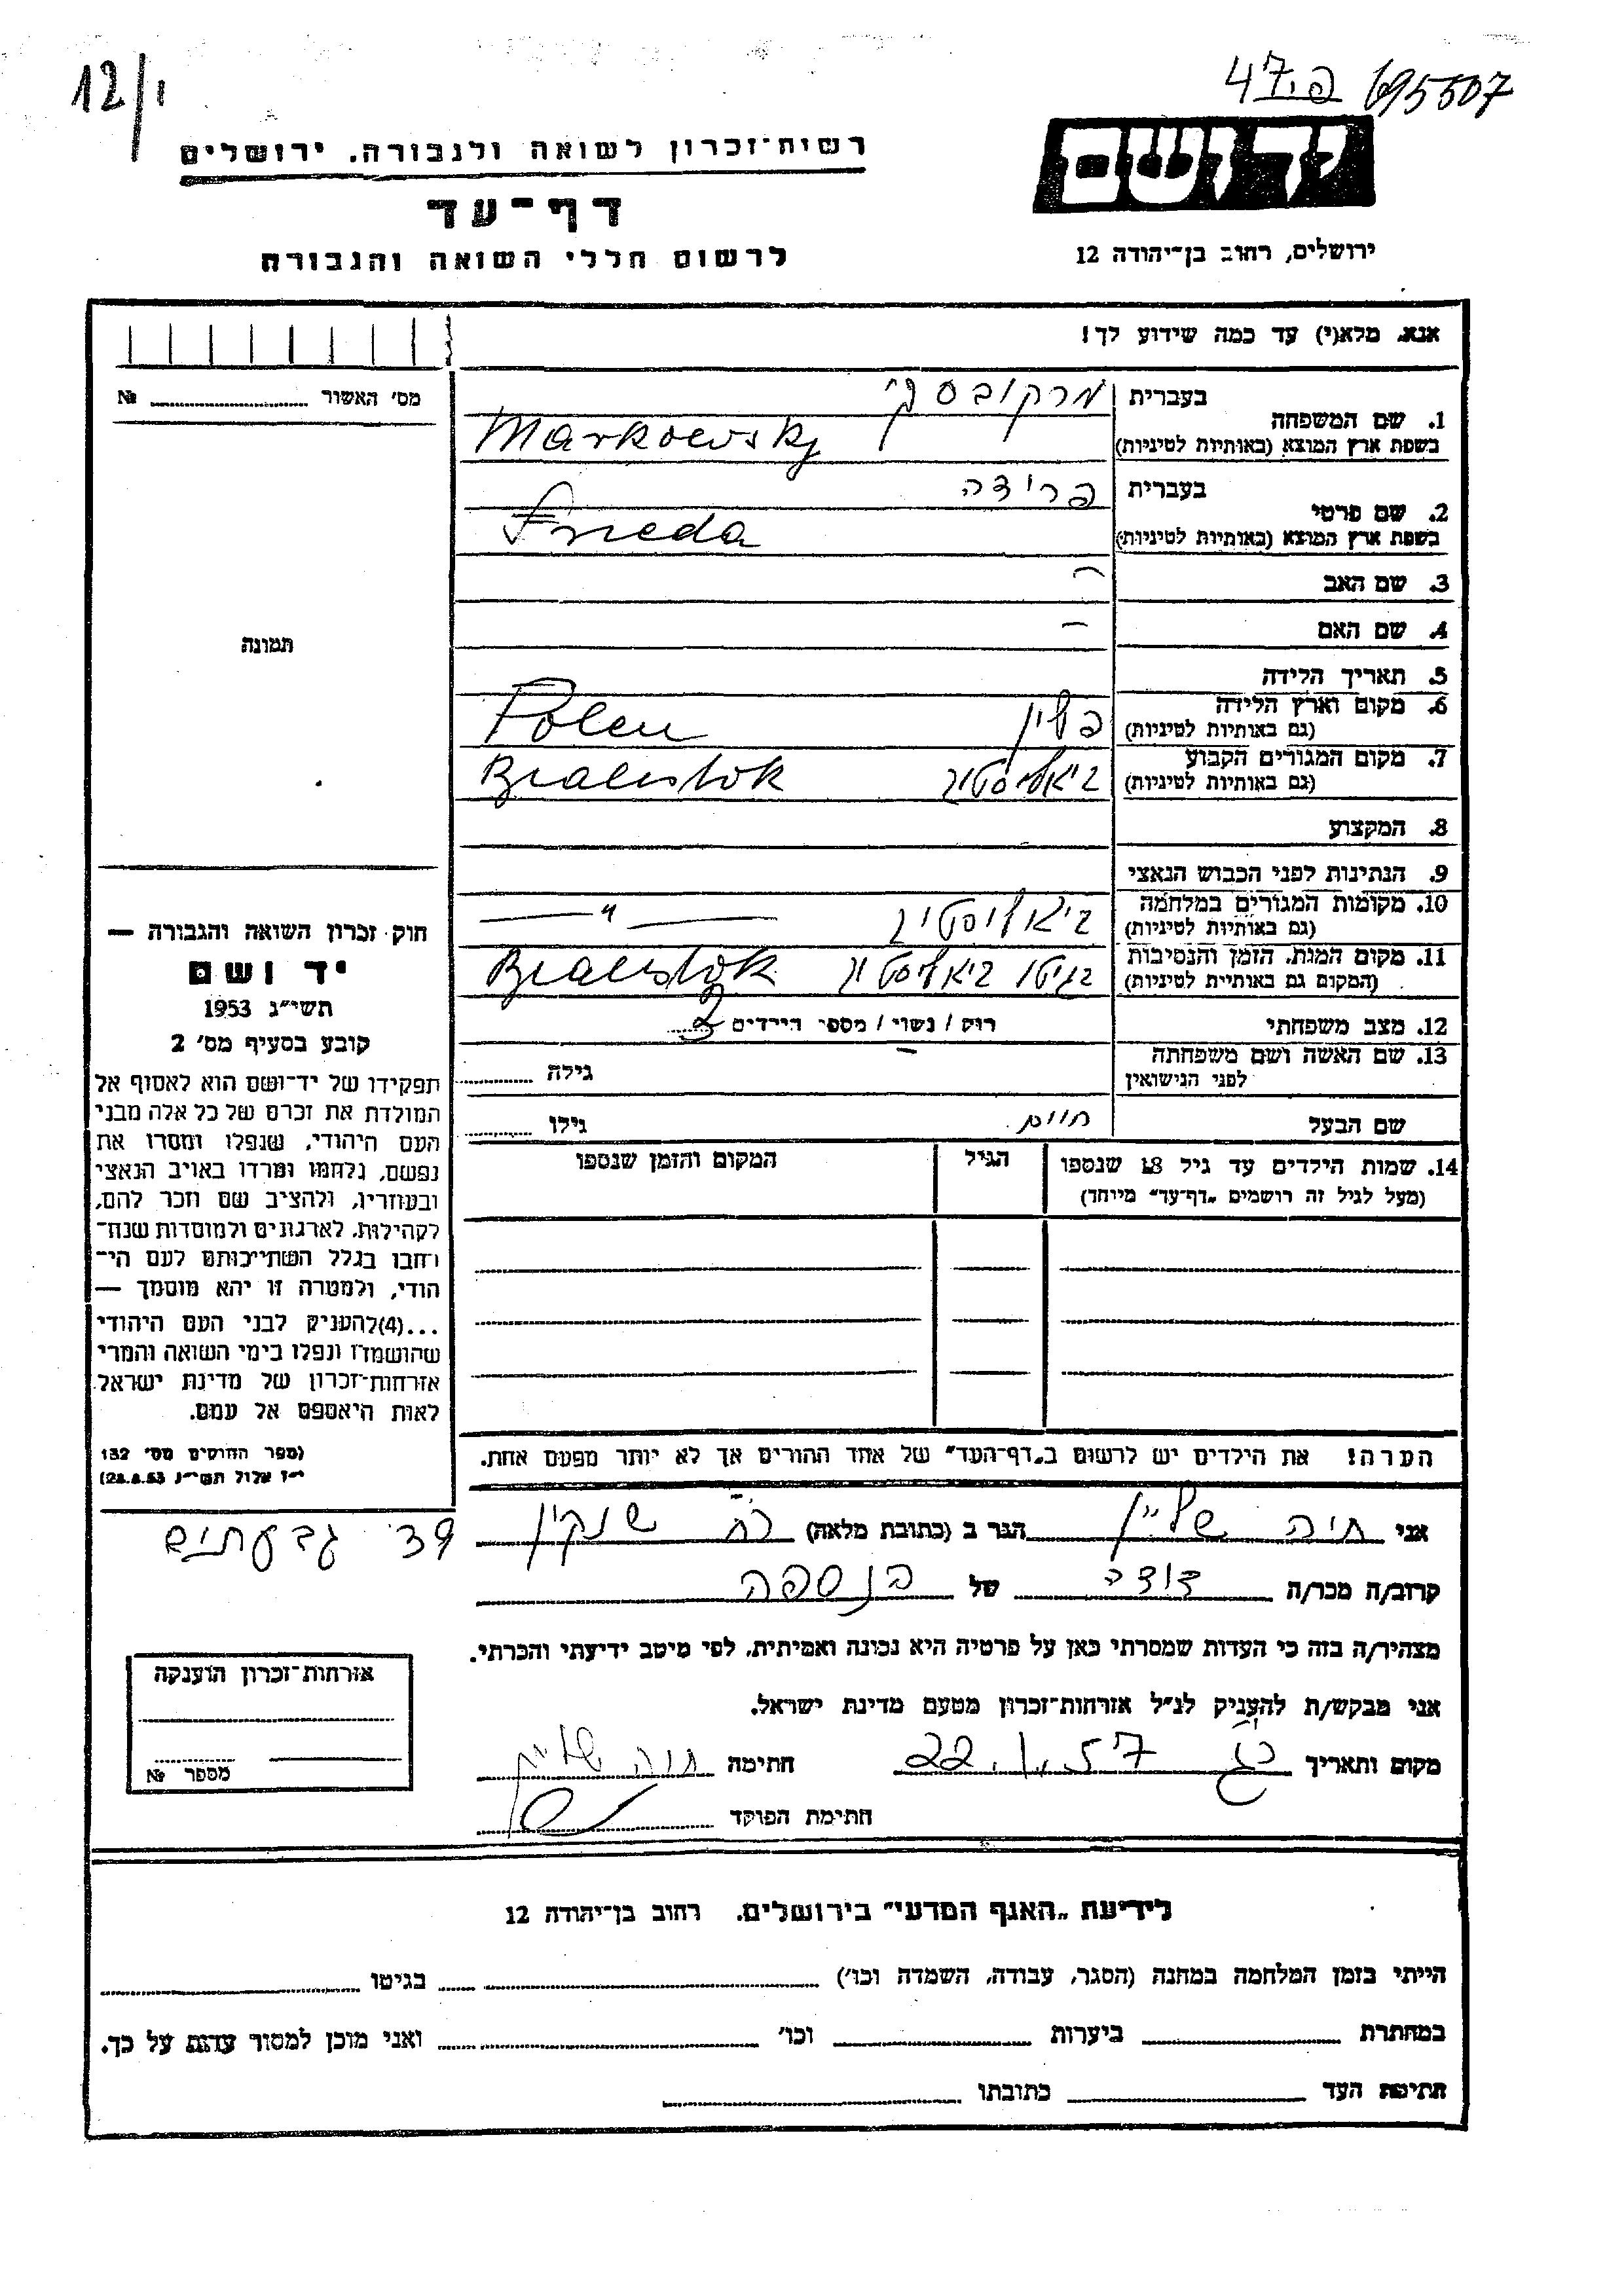 12/1
47.פ 695507
יד ושם
רשות-זכרון לשואה ולגבורה. ירושלים
דף-עד
לרשום חללי השואה והגבורה
ירושלים, רחוב בן-יהודה 12
אנא. מלא(י) עד כמה שידוע לך!
מס' האשור № 
בעברית מרקובסקי
1. שם המשפחה
בשפת ארץ המוצא (באותיות לטיניות) Markowsky
בעברית פרידה
2. שם פרטי
בשפת ארץ המוצא (באותיות לטיניות) Frieda
3. שם האב –
4. שם האם –
תמונה
5. תאריך הלידה
6. מקום וארץ הלידה
(גם באותיות לטיניות) פולין Polen
7. מקום המגורים הקבוע
(גם באותיות לטיניות) ביאליסטוק Bialistok
8. המקצוע
9. הנתינות לפני הכבוש הנאצי
10. מקומות המגורים במלחמה
(גם באותיות לטיניות) ביאליסטוק — " —
11. מקום המות. הזמן והנסיבות
(המקום גם באותיית לטיניות) בגיטו ביאליסטוק Bialistok
12. מצב משפחתי רוק / נשוי / מספר הילדים 2
13. שם האשה ושם משפחתה
לפני הנישואין – גילה
שם הבעל חיים. גילו
14. שמות הילדים עד גיל 18 שנספו הגיל המקום והזמן שנספו
(מעל לגיל זה רושמים „דף-עד" מייוחד)
הערה! את הילדים יש לרשום ב„דף-העד" של אחד ההורים אך לא יותר מפעם אחת.
חוק זכרון השואה והגבורה —
יד ושם
תשי"ג 1953
קובע בסעיף מס' 2
תפקידו של יד-ושם הוא לאסוף אל
המולדת את זכרם של כל אלה מבני
העם היהודי, שנפלו ומסרו את
נפשם, נלחמו ומרדו באויב הנאצי
ובעוזריו, ולהציב שם וזכר להם,
לקהילות, לארגונים ולמוסדות שנח-
רחבו בגלל השתייכותם לעם הי-
הודי, ולמטרה זו יהא מוסמך —
...(4)להעניק לבני העם היהודי
שהושמדו ונפלו בימי השואה והמרי
אזרחות-זכרון של מדינת ישראל
לאות היאספם אל עמם.
(ספר החוקים מס' 132
י"ז אלול תשי"ג 28.8.53)
אני חיה שליין הגר ב (כתובת מלאה) רח' שנקין 39 גבעתיים
קרוב/ה מכר/ה דודה של הנספה
מצהיר/ה בזה כי העדות שמסרתי כאן על פרטיה היא נכונה ואמיתית. לפי מיטב ידיעתי והכרתי.
אני מבקש/ת להעניק לנ"ל אזרחות-זכרון מטעם מדינת ישראל.
מקום ותאריך 22.1.57 חתימה חיה שליין
חתימת הפוקד
אזרחות-זכרון הוענקה
מספר №
לידיעת „האגף המדעי" בירושלים. רחוב בן-יהודה 12
הייתי בזמן המלחמה במחנה (הסגר, עבודה, השמדה וכו') בגיטו
במחתרת ביערות וכו' ואני מוכן למסור עדות על כך.
חתימת העד כתובתו